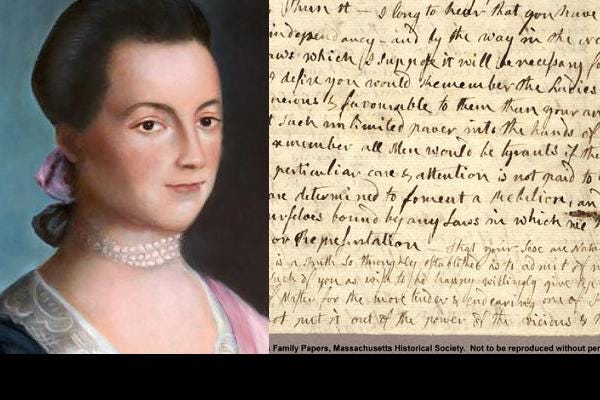 I long to hear that you have
independancy and by the way in the
Laws which I suppose it will be necessary
I desire you would Remember the Ladies
& favourable to them than your
such unlimited power into the hands of
remember all Men would be tyrants if
perticuliar care & attention is not paid to
are determined to foment a Rebelion, and
ourselves bound by any Laws in which we
or Representation
that your Sex are
is a Truth so thoroughly established as to admit of
such of you as wish to be happy willingly give up
for the more tender & endearing one of
not put it out of the power of the vicious &
Family Papers, Massachusetts Historical Society. Not to be reproduced without per